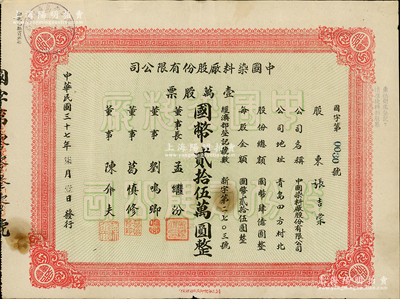 中國染料廠股份有限公司
壹萬股票
國字第0030號
股東 張吉棠
公司名稱 中國染料廠股份有限公司
公司地址 青島四方村北
股份總額 國幣肆億圓整
每股金額 國幣貳拾伍圓整
經濟部登記證號數 新字第四七〇三號
國幣貳拾伍萬圓整
董事長 孟繼汾
董事 劉鳴卿
董事 葛慎修
董事 陳介夫
中華民國三十七年 月 日發行
上海陽明拍賣